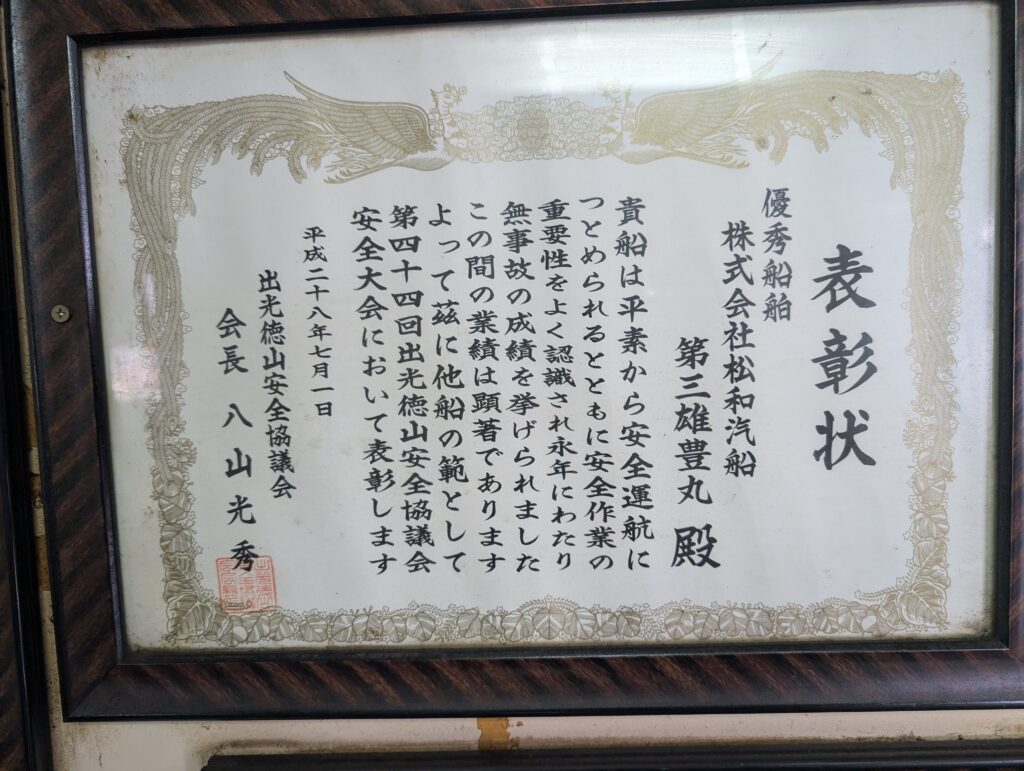 表彰状
優秀船舶
株式会社松和汽船
第三雄豊丸 殿
貴船は平素から安全運航に
つとめられるとともに安全作業の
重要性をよく認識され永年にわたり
無事故の成績を挙げられました
この間の業績は顕著であります
よって茲に他船の範として
第四十四回出光徳山安全協議会
安全大会において表彰します
平成二十八年七月一日
出光徳山安全協議会
会長 八山光秀